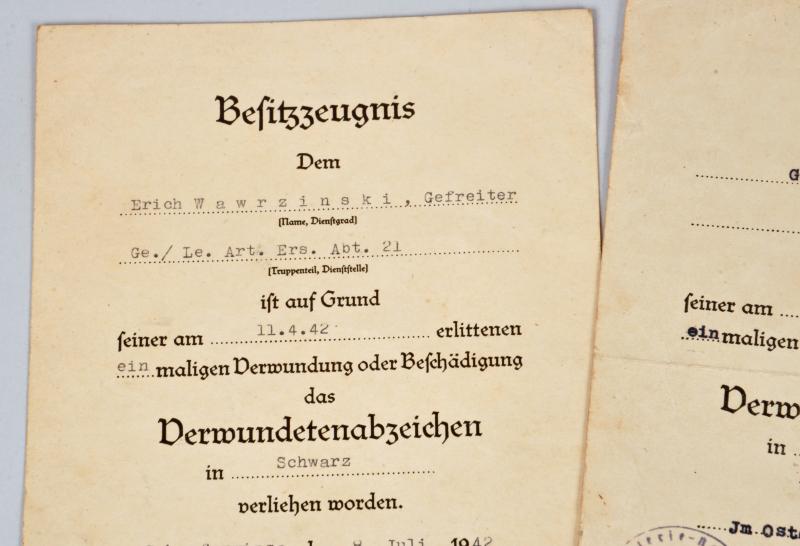 Besitzzeugnis
Dem
Erich Wawrzinski, Gefreiter
(Name, Dienstgrad)
Ge./ Le. Art. Ers. Abt. 21
(Truppenteil, Dienststelle)
ist auf Grund
seiner am 11.4.42 erlittenen
ein maligen Verwundung oder Beschädigung
das
Verwundetenabzeichen
in Schwarz
verliehen worden.
8. Juli 1942
G
seiner am
ein maligen
Verw
in
Jm Ost